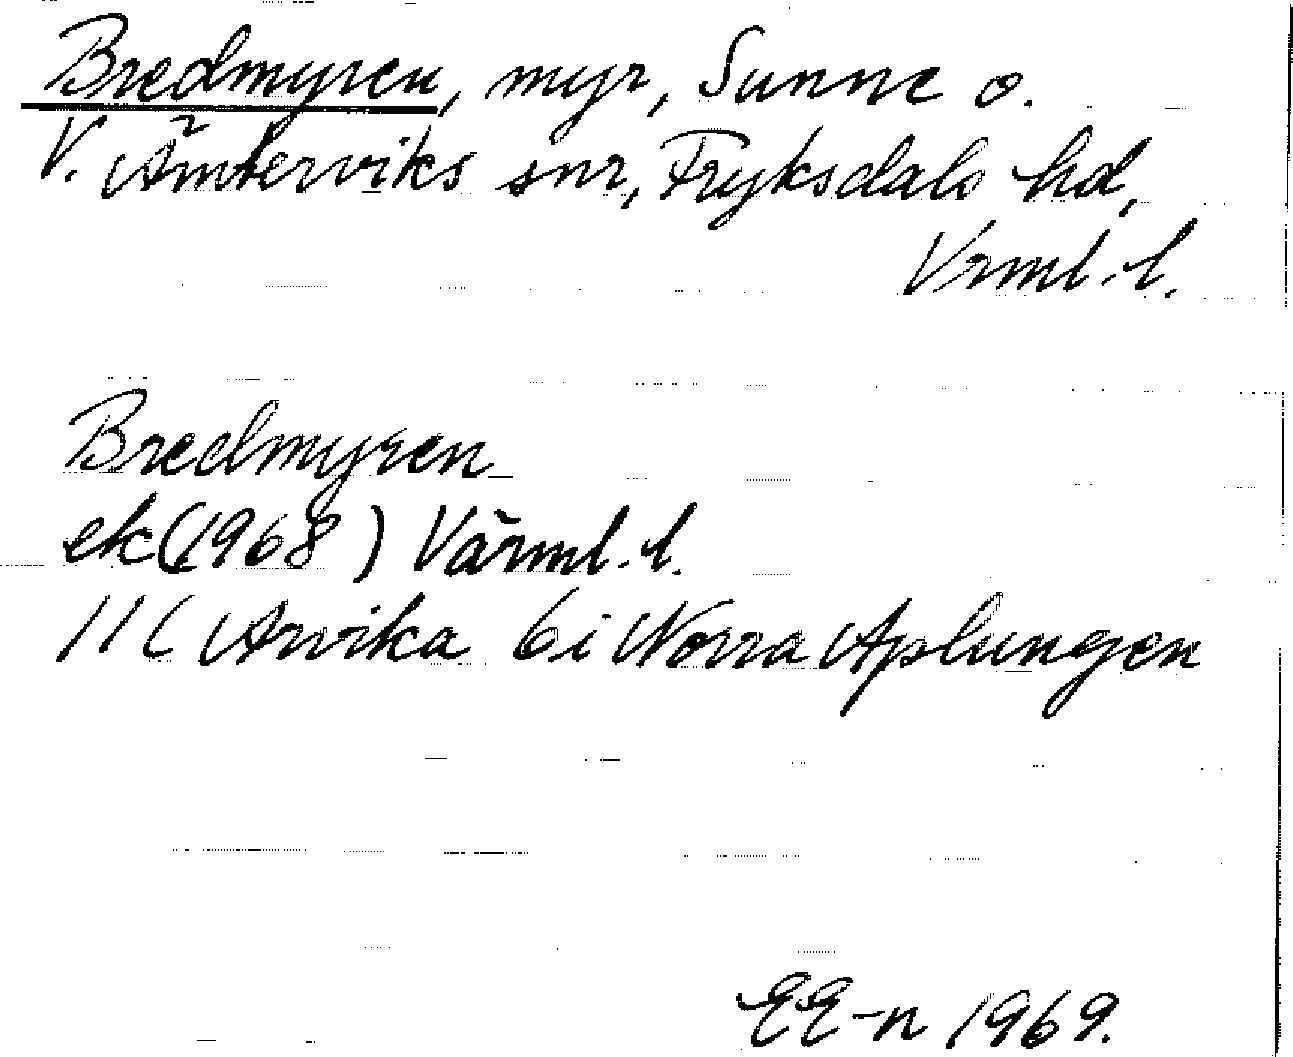 Bredmyren, myr, Sunne o.
V. Ämterviks snr, Fryksdals hd,
Vrml. l.
Bredmyren
ek (1968) Värml. l.
11C Arvika 6i Norra Aplungen
EE-n 1969.